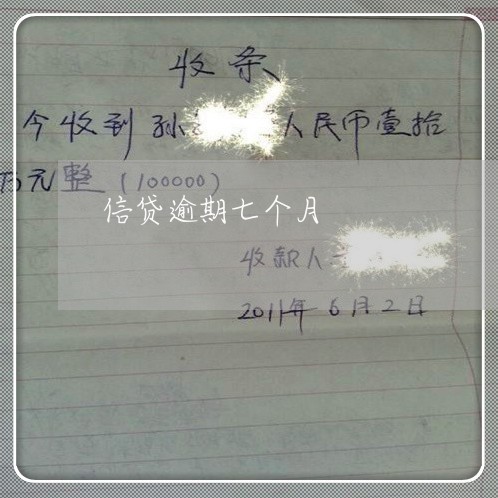 收条
今收到孙 人民币壹拾
万元整(100000)
信贷逾期七个月
收款人
2011年6月2日